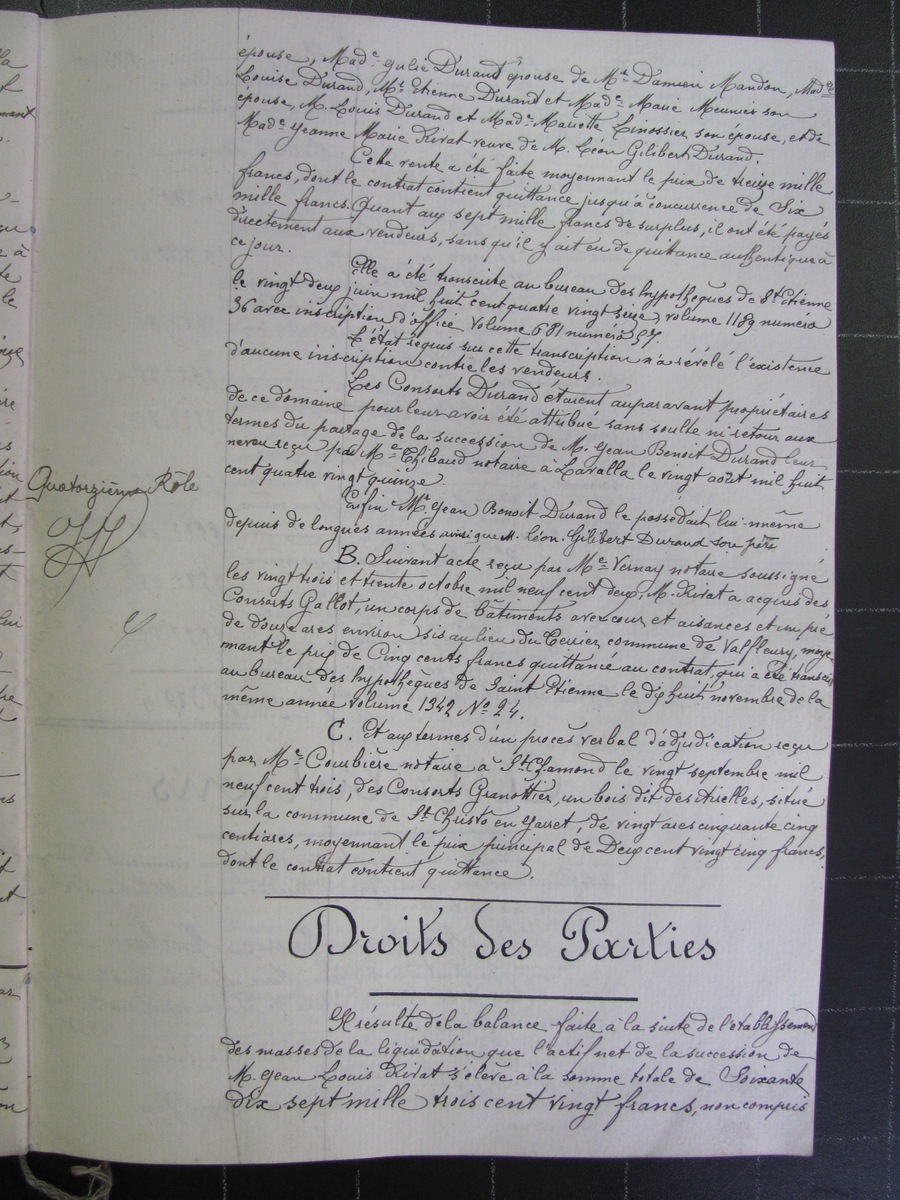 épouse, Made Julie Durand épouse de Mr Damien Mandon, Made
Louise Durand, Mr Etienne Durand et Made Marie Meunier son
épouse, M. Louis Durand et Made Mariette Linossier son épouse, et de
Made Jeanne Marie Rivat veuve de M. Léon Gilibert Durand.
Cette vente a été faite moyennant le prix de treize mille
francs, dont le contrat contient quittance jusqu'à concurrence de Six
mille francs. Quant aux sept mille francs de surplus, il ont été payés
directement aux vendeurs, sans qu'il y ait eu de quittance authentique à
ce jour.
Elle a été transcrite au bureau des hypothèques de St Etienne
le vingt deux juin mil huit cent quatre vingt seize, volume 1189 numéro
36 avec inscription d'office Volume 681 numéro 57.
L'état requis sur cette transcription n'a révélé l'existence
d'aucune inscription contre les vendeurs.
Les Consorts Durand étaient auparavant propriétaires
de ce domaine pour leur avoir été attribué sans soulte ni retour aux
termes du partage de la succession de M. Jean Benoit Durand leur
neveu reçu par Me Thibaud notaire à Lavalla le vingt août mil huit
cent quatre vingt quinze.
Quatorzième Rôle
Enfin Mr Jean Benoit Durand le possédait lui-même
depuis de longues années ainsi que M. Léon Gilibert Durand son père
B. Suivant acte reçu par Me Vernay notaire soussigné
les vingt trois et trente octobre mil neuf cent deux, M. Rivat a acquis des
Consorts Gallot, un corps de bâtiments avec cour et aisances et un pré
de douze ares environ sis au lieu du Cerier, commune de Valfleury, moye
nnant le prix de Cinq cents francs quittancé au contrat, qui a été transcrit
au bureau des hypothèques de Saint Etienne le dix huit novembre de la
même année Volume 1342 No 24.
C. Et aux termes d'un procès verbal d'adjudication reçu
par Me Courbière notaire à St Chamond le vingt septembre mil
neuf cent trois, des Consorts Granottier, un bois dit des Airelles, situé
sur la commune de St Christo en Jarret, de vingt ares cinquante cinq
centiares, moyennant le prix principal de Deux cent vingt cinq francs,
dont le contrat contient quittance.
Droits des Parties
Il résulte de la balance faite à la suite de l'établissement
des masses de la liquidation que l'actif net de la succession de
M. Jean Louis Rivat s'élève à la somme totale de Soixante
dix sept mille trois cent vingt francs, non compris